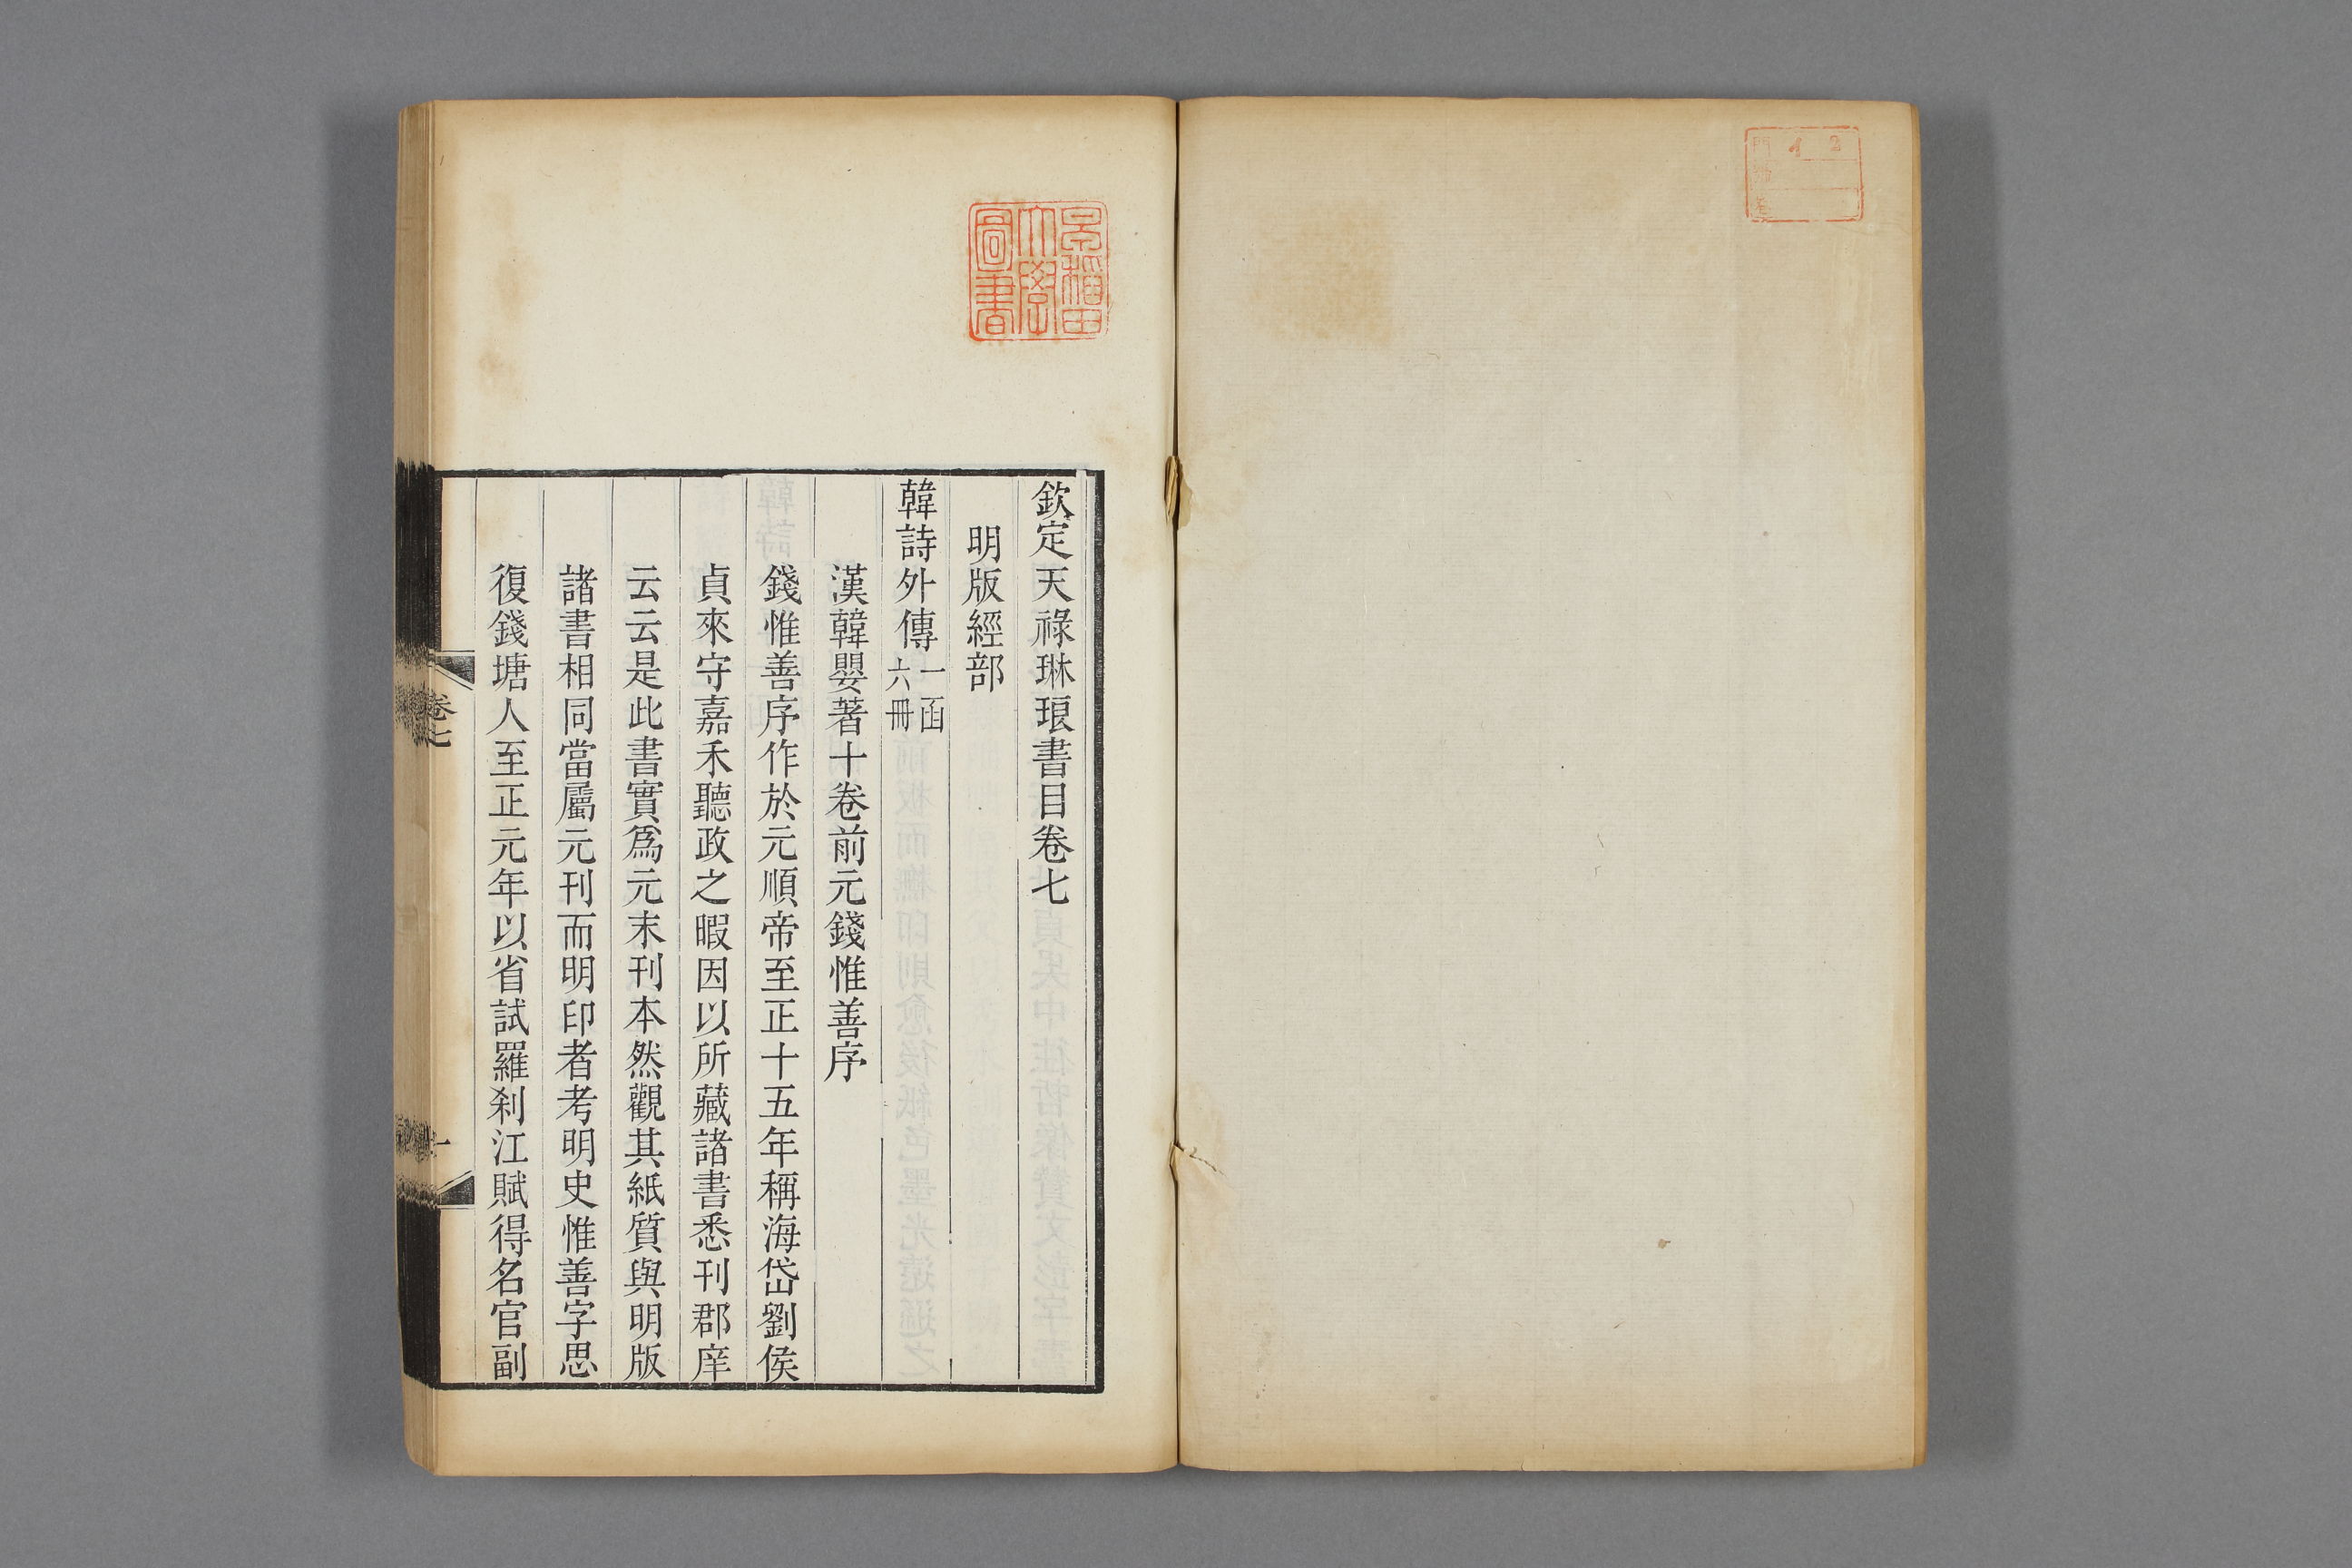 欽定天祿琳琅書目卷七
明版經部
韓詩外傳一函六冊
漢韓嬰著十卷前元錢惟善序
錢惟善序作於元順帝至正十五年稱海岱劉侯
貞來守嘉禾聽政之暇因以所藏諸書悉刊郡庠
云云是此書實爲元末刊本然觀其紙質與明版
諸書相同當屬元刊而明印者考明史惟善字思
復錢塘人至正元年以省試羅刹江賦得名官副
卷七
一
早稻田
大學
圖書